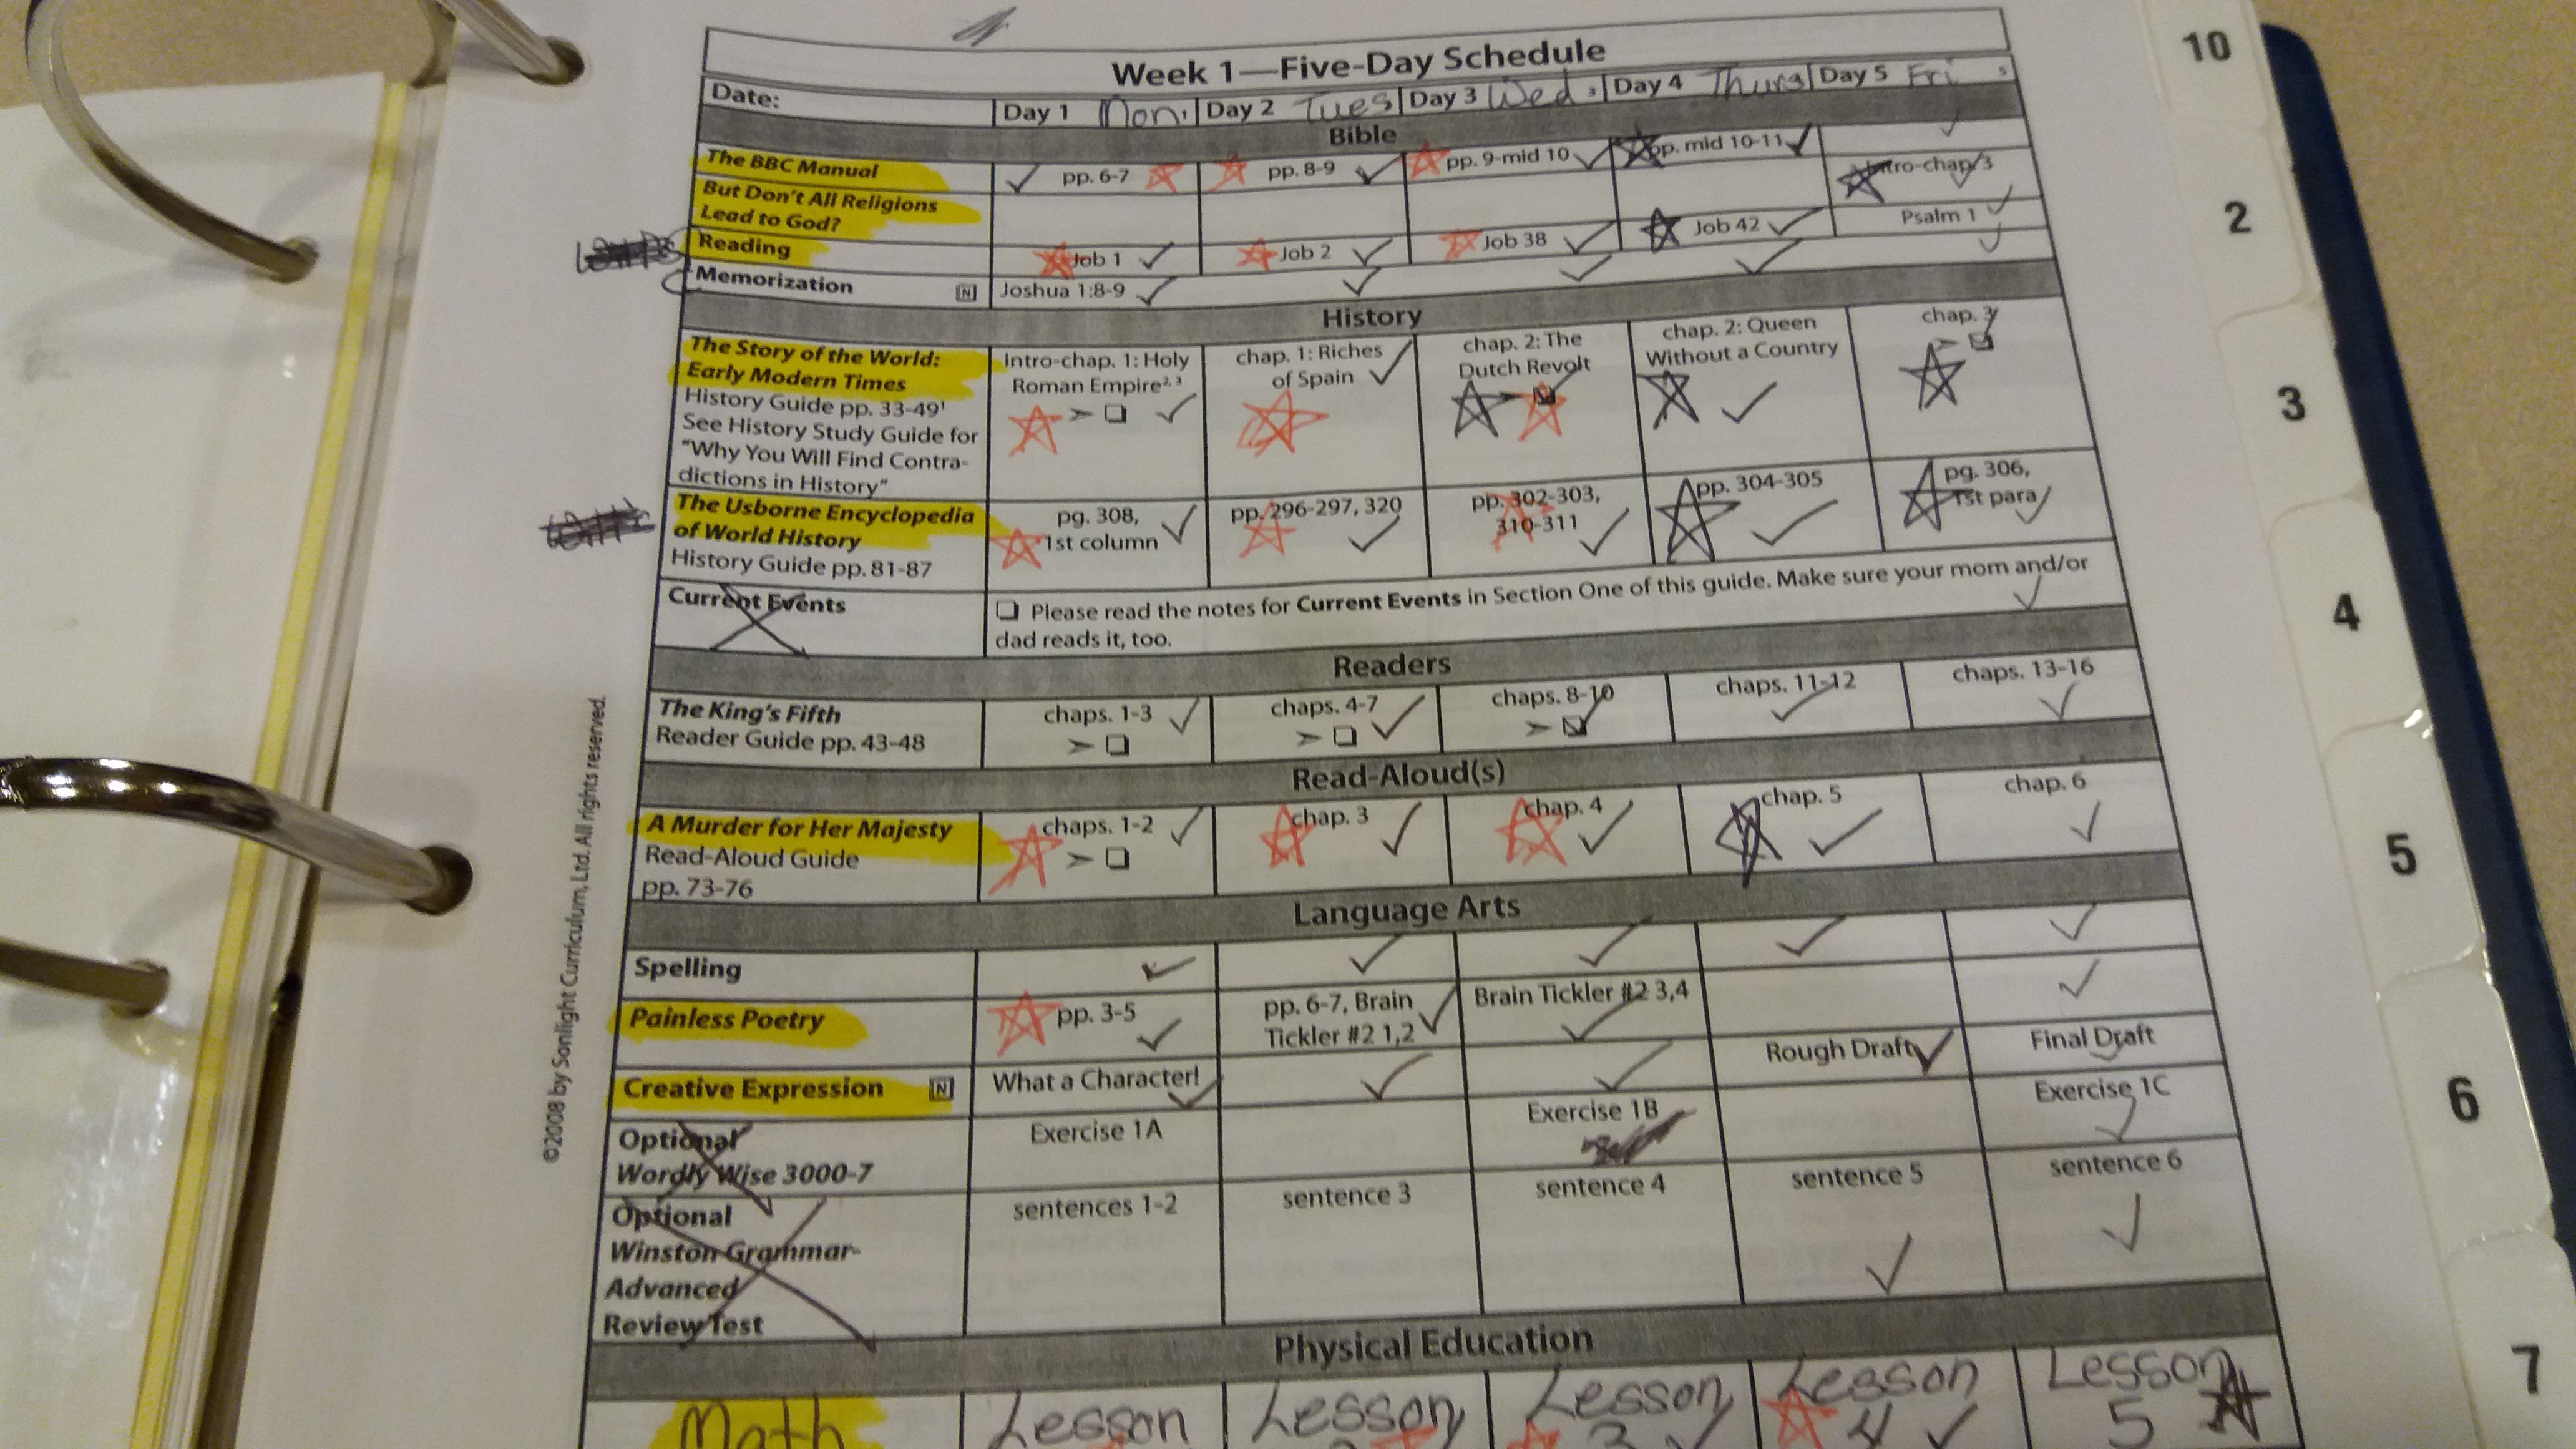 Week 1—Five-Day Schedule
Date: Day 1 Mon. Day 2 Tues Day 3 Wed. Day 4 Thurs Day 5 Fri
Bible
The BBC Manual pp. 6-7 pp. 8-9 pp. 9-mid 10 pp. mid 10-11
But Don't All Religions Intro-chap. 3
Lead to God?
Reading Job 1 Job 2 Job 38 Job 42 Psalm 1
Memorization N Joshua 1:8-9
History
The Story of the World: Intro-chap. 1: Holy chap. 1: Riches chap. 2: The chap. 2: Queen chap. 3
Early Modern Times Roman Empire2, 3 of Spain Dutch Revolt Without a Country
History Guide pp. 33-491
See History Study Guide for
"Why You Will Find Contra-
dictions in History"
The Usborne Encyclopedia pg. 308, pp. 296-297, 320 pp. 302-303, pp. 304-305 pg. 306,
of World History 1st column 310-311 1st para
History Guide pp. 81-87
Current Events ❏ Please read the notes for Current Events in Section One of this guide. Make sure your mom and/or
dad reads it, too.
Readers
The King's Fifth chaps. 1-3 chaps. 4-7 chaps. 8-10 chaps. 11-12 chaps. 13-16
Reader Guide pp. 43-48
Read-Aloud(s)
A Murder for Her Majesty chaps. 1-2 chap. 3 chap. 4 chap. 5 chap. 6
Read-Aloud Guide
pp. 73-76
Language Arts
Spelling
Painless Poetry pp. 3-5 pp. 6-7, Brain Brain Tickler #2 3,4
Tickler #2 1,2
Creative Expression N What a Character! Rough Draft Final Draft
Optional Exercise 1A Exercise 1B Exercise 1C
Wordly Wise 3000-7
Optional sentences 1-2 sentence 3 sentence 4 sentence 5 sentence 6
Winston Grammar-
Advanced
Review Test
Physical Education
Math Lesson Lesson Lesson Lesson Lesson
3 4 5
©2008 by Sonlight Curriculum, Ltd. All rights reserved.
10
2
3
4
5
6
7